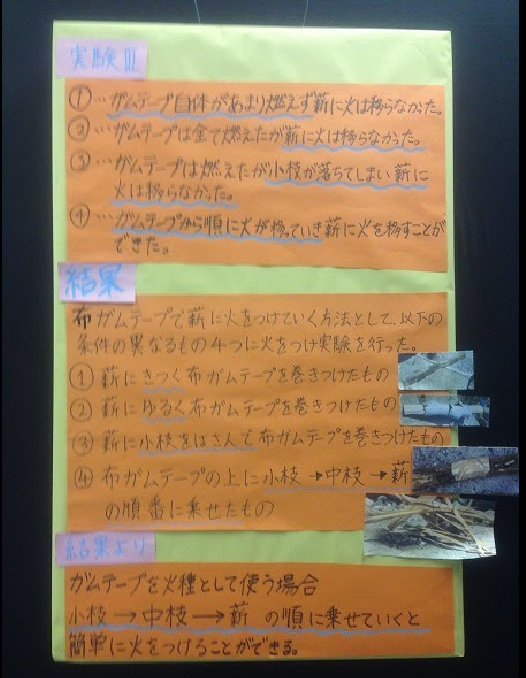 実験III
①…ガムテープ自体があまり燃えず薪に火は移らなかった。
②…ガムテープは全て燃えたが薪に火は移らなかった。
③…ガムテープは燃えたが小枝が落ちてしまい薪に
火は移らなかった。
④…ガムテープから順に火が移っていき薪に火を移すことが
できた。
結果
布ガムテープで薪に火をつけていく方法として、以下の
条件の異なるもの4つに火をつけ実験を行った。
① 薪にきつく布ガムテープを巻きつけたもの
② 薪にゆるく布ガムテープを巻きつけたもの
③ 薪に小枝をはさんで布ガムテープを巻きつけたもの
④ 布ガムテープの上に小枝→中枝→薪
の順番に乗せたもの
結果より
ガムテープを火種として使う場合
小枝→中枝→薪 の順に乗せていくと
簡単に火をつけることができる。